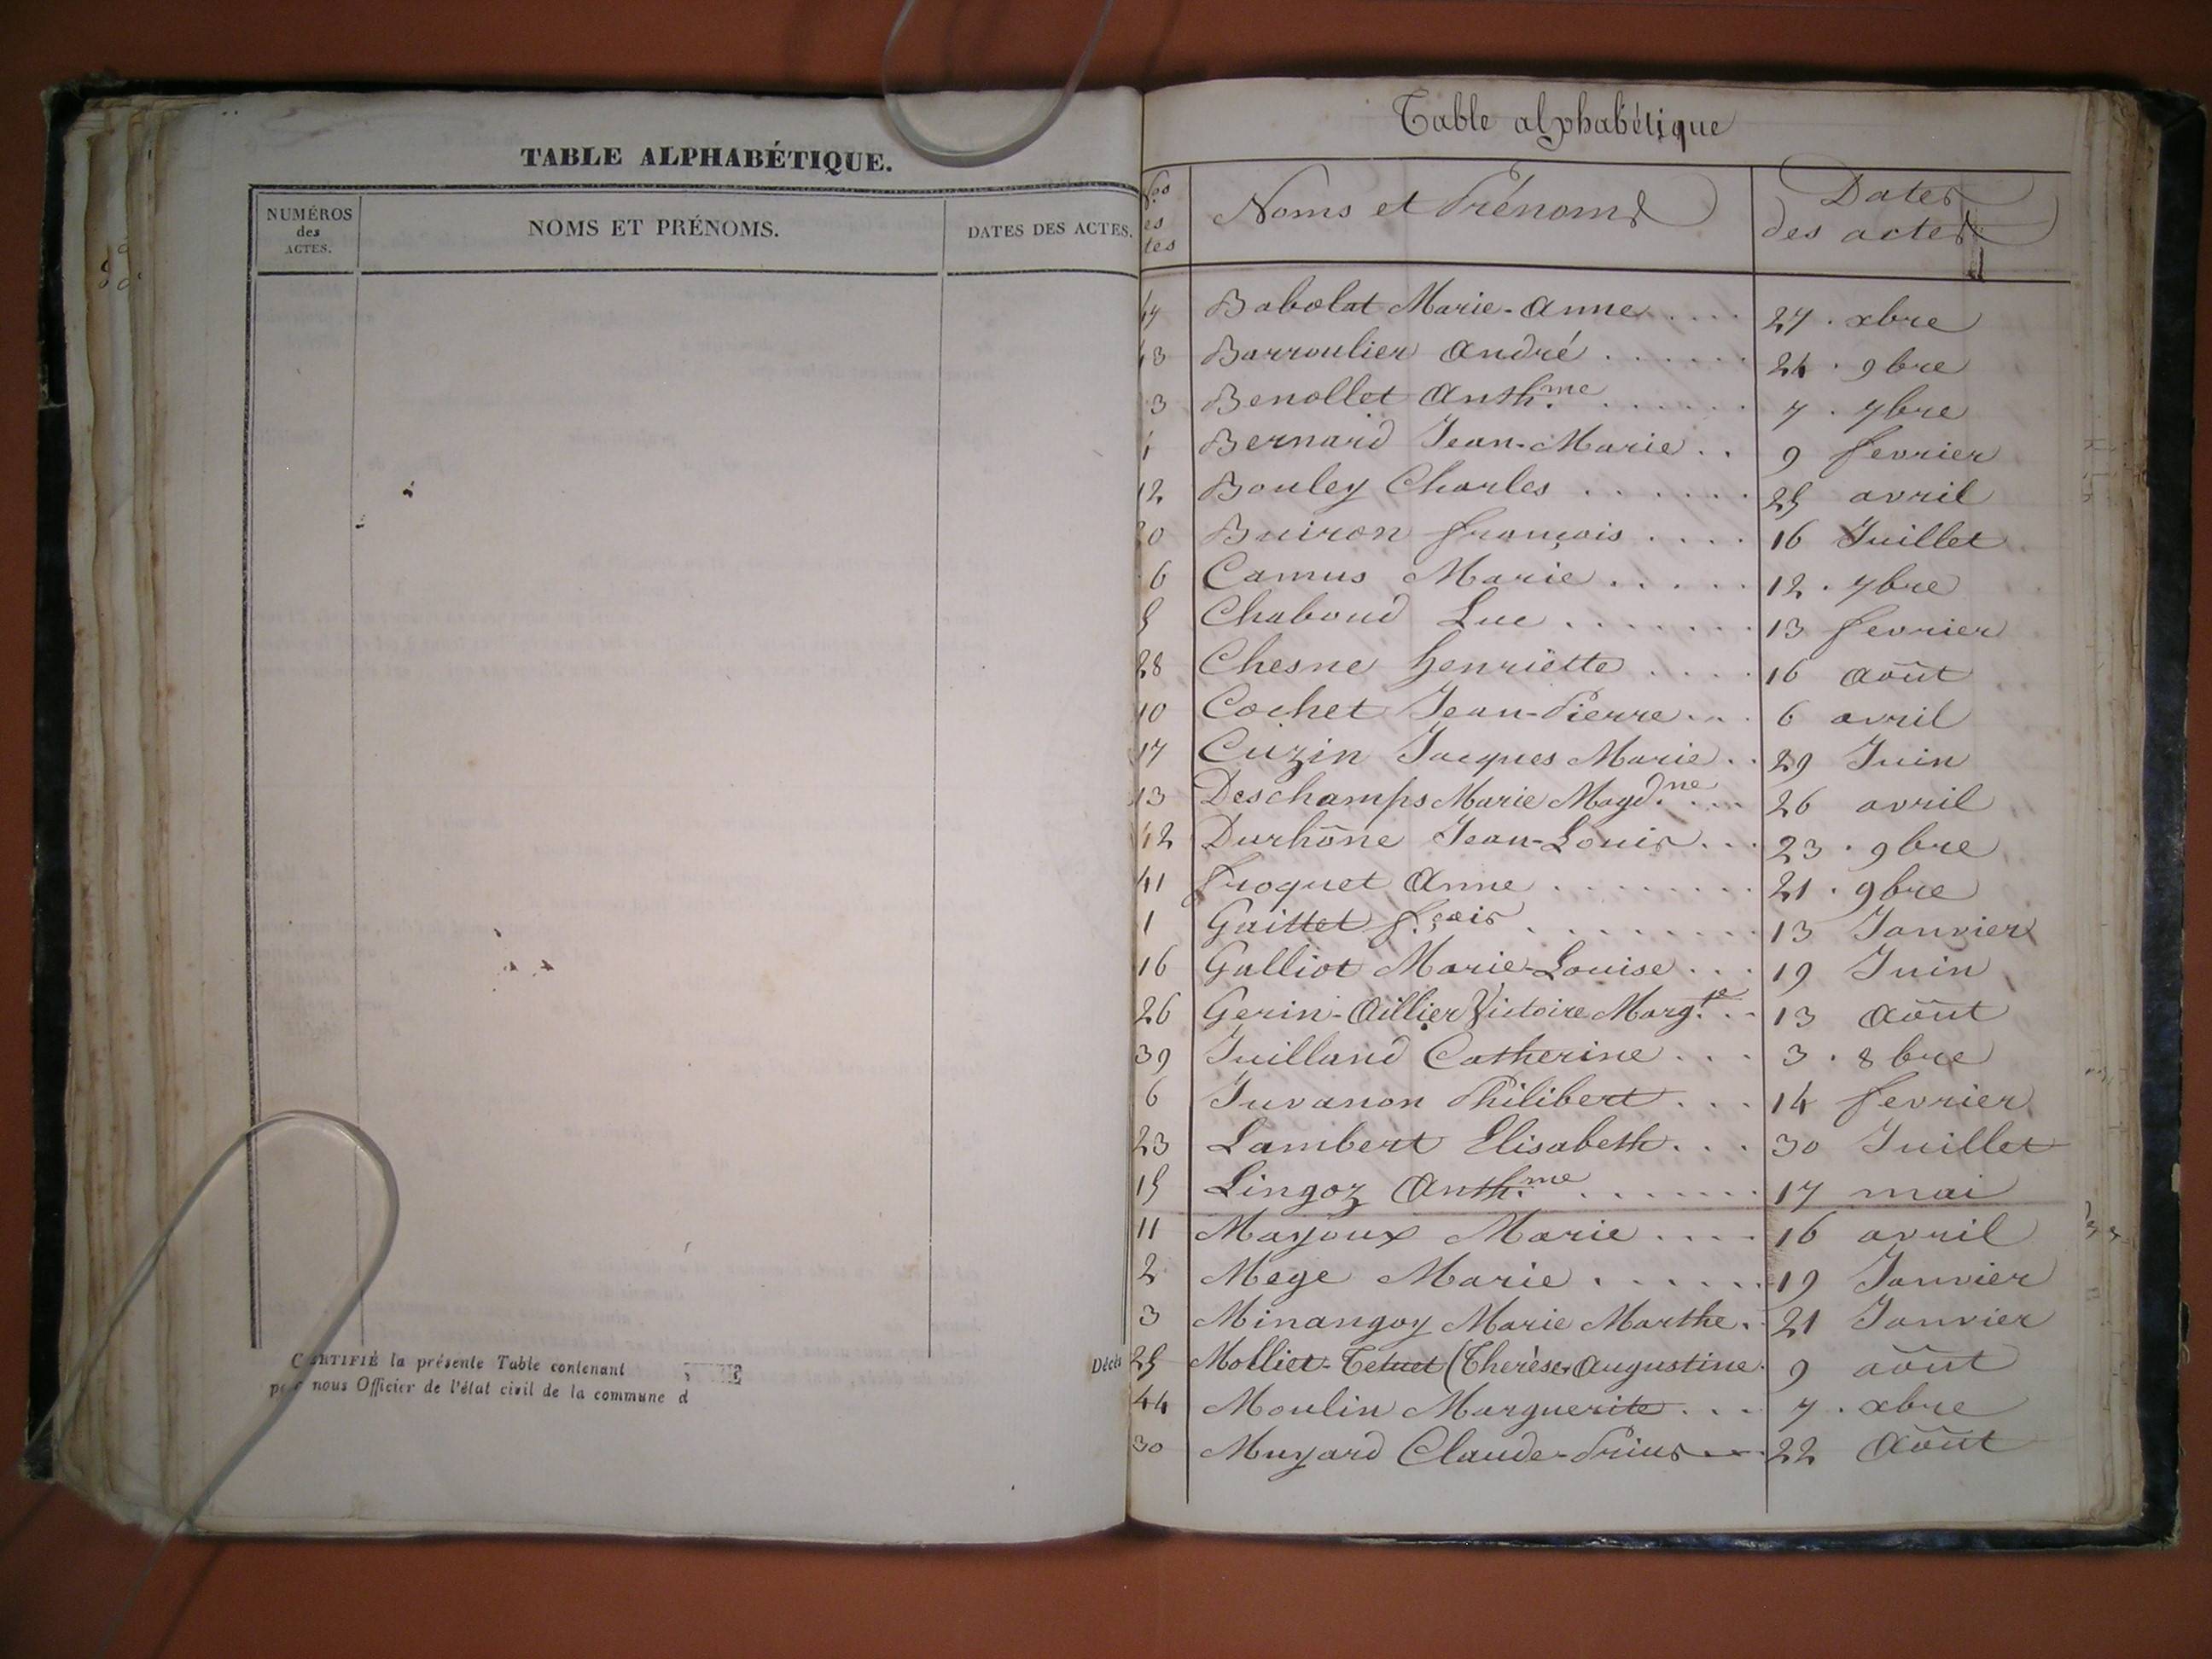 TABLE ALPHABÉTIQUE.
NUMÉROS
des
ACTES.
NOMS ET PRÉNOMS.
DATES DES ACTES.
CERTIFIÉ la présente Table contenant
par nous Officier de l'état civil de la commune d
Décès
Table alphabétique
Nos
es
tes
Noms et Prénoms
Dates
des actes
47 Babolat Marie-Anne .... 27 . xbre
43 Barroulier André ...... 24 . 9bre
3 Benollet Anth.me ...... 7 . 7bre
1 Bernard Jean-Marie .. 9 fevrier
12 Bouley Charles ...... 25 avril
20 Buiron françois .... 16 Juillet
6 Camus Marie ..... 12 . 7bre
5 Chaboud Luc ....... 13 fevrier
28 Chesne henriette .... 16 Août
10 Cochet Jean-Pierre ... 6 avril
17 Cuzin Jacques Marie .. 29 Juin
13 Deschamps Marie Magd.ne ... 26 avril
42 Durhône Jean-Louis ... 23 . 9bre
41 froquet Anne ........ 21 . 9bre
1 Guittet f.çois ......... 13 Janvier
16 Galliot Marie-Louise ... 19 Juin
26 Gerin-Aillier Victoire Marg.te .. 13 Août
39 Juilland Catherine ... 3 . 8bre
6 Juvanon Philibert ... 14 fevrier
23 Lambert Elisabeth ... 30 Juillet
15 Lingoz Anth.me ....... 17 mai
11 Mayoux Marie .... 16 avril
2 Mege Marie ...... 19 Janvier
3 Minangoy Marie Marthe . 21 Janvier
25 Molliet-Tetuet (Therèse Augustine . 9 août
44 Moulin Marguerite ... 7 . xbre
30 Muyard Claude-Prius 22 Août